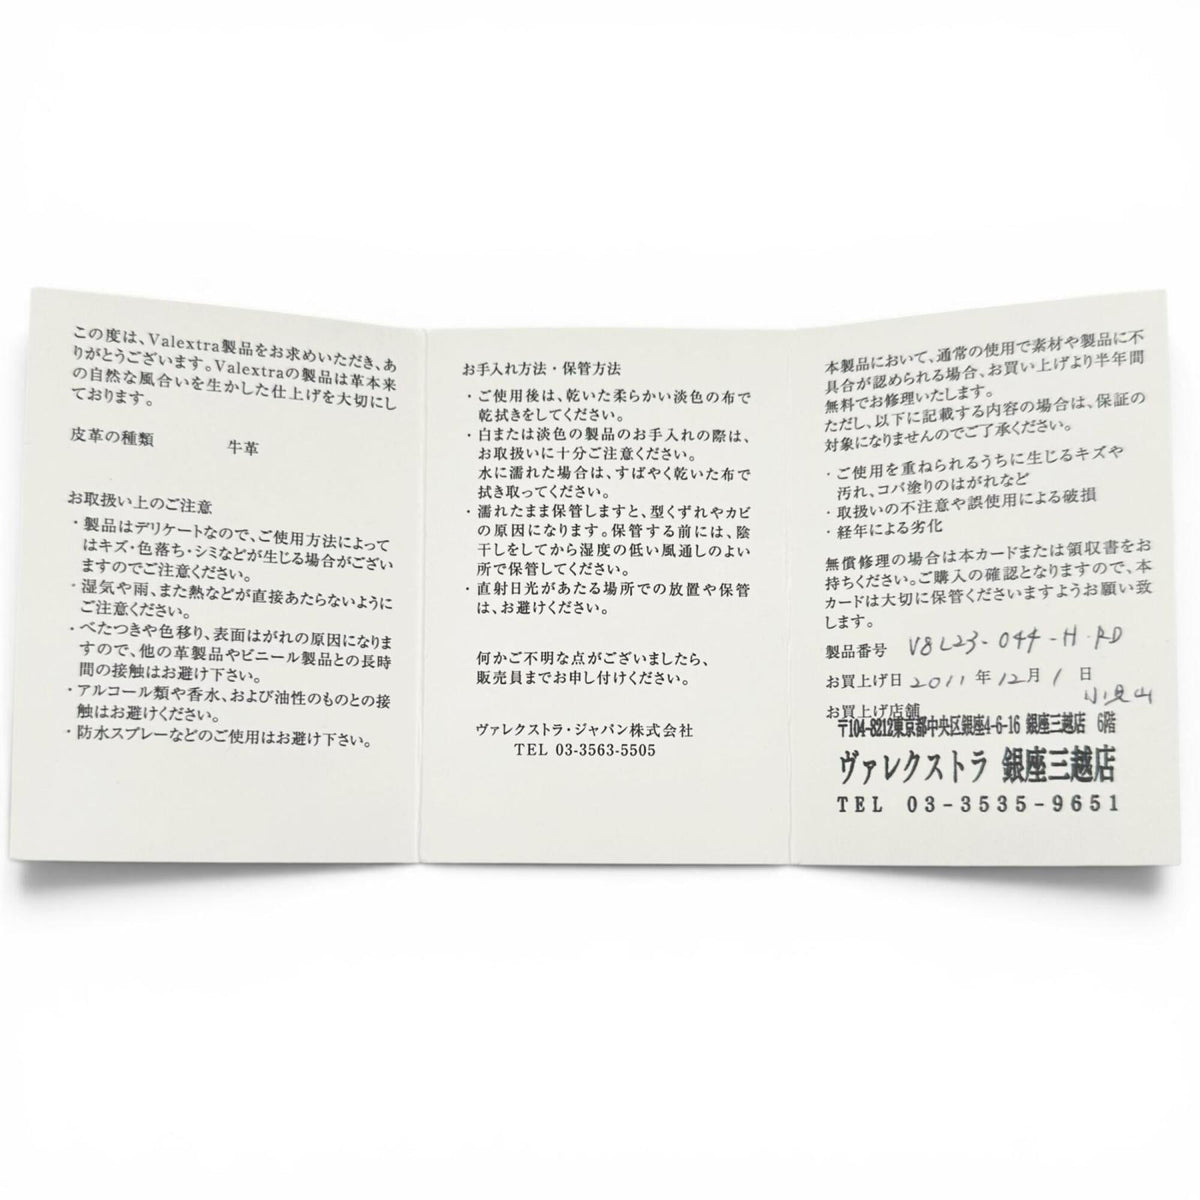 この度は、Valextra製品をお求めいただき、あ
りがとうございます。Valextraの製品は革本来
の自然な風合いを生かした仕上げを大切にし
ております。
皮革の種類 牛革
お取扱い上のご注意
・製品はデリケートなので、ご使用方法によって
はキズ・色落ち・シミなどが生じる場合がござい
ますのでご注意ください。
・湿気や雨、また熱などが直接あたらないように
ご注意ください。
・べたつきや色移り、表面はがれの原因になりま
すので、他の革製品やビニール製品との長時
間の接触はお避け下さい。
・アルコール類や香水、および油性のものとの接
触はお避けください。
・防水スプレーなどのご使用はお避け下さい。
お手入れ方法・保管方法
・ご使用後は、乾いた柔らかい淡色の布で
乾拭きをしてください。
・白または淡色の製品のお手入れの際は、
お取扱いに十分ご注意ください。
水に濡れた場合は、すばやく乾いた布で
拭き取ってください。
・濡れたまま保管しますと、型くずれやカビ
の原因になります。保管する前には、陰
干しをしてから湿度の低い風通しのよい
所で保管してください。
・直射日光があたる場所での放置や保管
は、お避けください。
何かご不明な点がございましたら、
販売員までお申し付けください。
ヴァレクストラ・ジャパン株式会社
TEL 03-3563-5505
本製品において、通常の使用で素材や製品に不
具合が認められる場合、お買い上げより半年間
無料でお修理いたします。
ただし、以下に記載する内容の場合は、保証の
対象になりませんのでご了承ください。
・ご使用を重ねられるうちに生じるキズや
汚れ、コバ塗りのはがれなど
・取扱いの不注意や誤使用による破損
・経年による劣化
無償修理の場合は本カードまたは領収書をお
持ちください。ご購入の確認となりますので、本
カードは大切に保管くださいますようお願い致
します。
製品番号 V8L23-044-H-RD
お買上げ日 2011年12月1日
小見山
お買上げ店舗
〒104-8212東京都中央区銀座4-6-16 銀座三越店 6階
ヴァレクストラ 銀座三越店
TEL 03-3535-9651